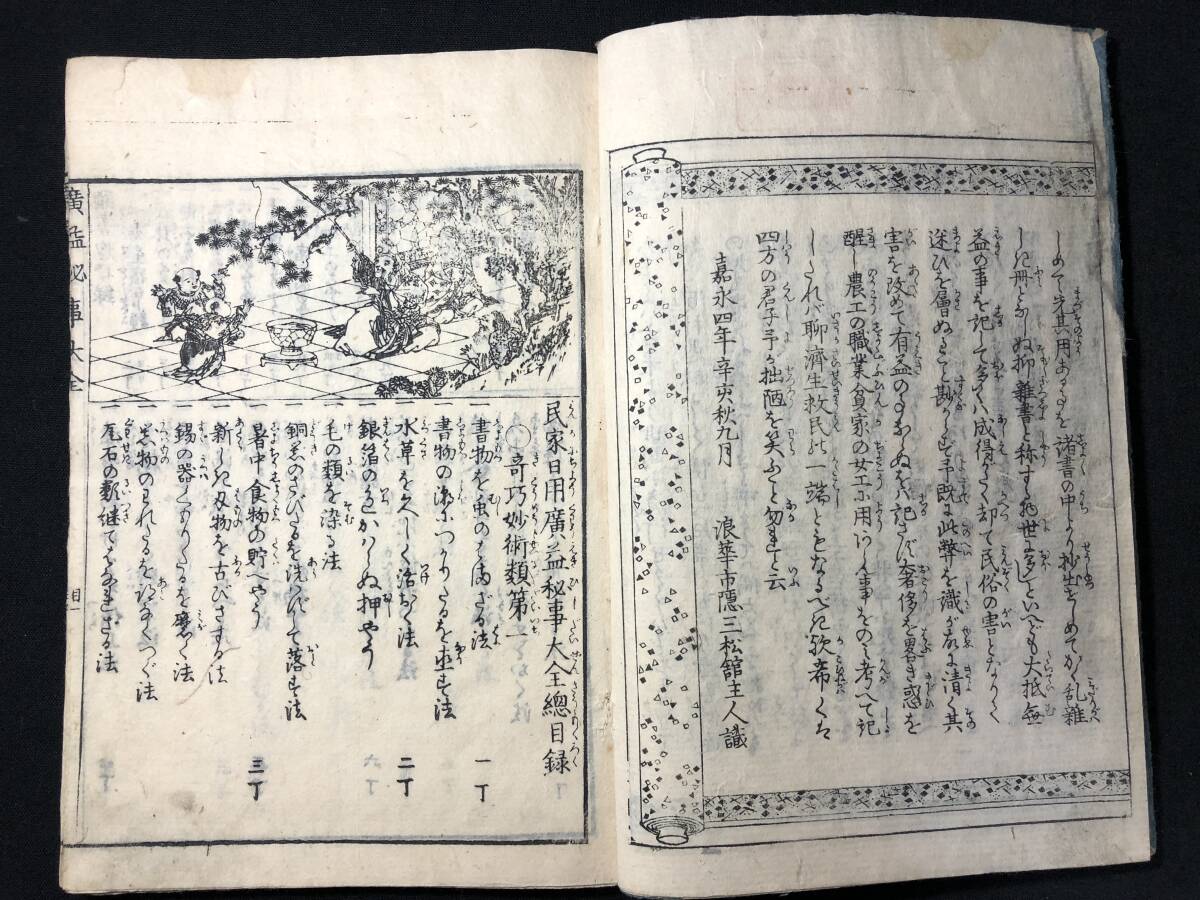 しめて先其用あるを諸書の中より抄出せしめてかく乱雑
しき冊となしぬ抑雑書と称する者世に多しといへども大抵無
益の事を記して多くハ成得がたく却て民俗の害となりて
迷ひを層ぬること勘からず予既に此弊を識が故に清く其
害を改めて有益のことならぬをバ記さず奢侈を畧き惑を
醒し農工の職業貧家の女工に用ひん事をのミ考へて記
したれバ聊済生救民の一端ともなるべき歟希くは
四方の君子予が拙陋を笑ふこと勿れと云
嘉永四年辛亥秋九月 浪華市隠三松館主人識
廣益秘事大全
民家日用廣益秘事大全總目録
○奇巧妙術類第一
一書物を虫のはまざる法 一丁
一書物の湯につかりたるを直す法
一水草を久しく活おく法 二丁
一銀箔の色かはらぬ押やう
一毛の類を染る法
一銅器のさびたるを洗はずして落す法
一暑中食物の貯へやう 三丁
一新しき刃物を古びさする法
一錫の器くもりたるを磨く法
一焼物のわれたるをつぐ法
一瓦石の類継てはなれざる法
目一